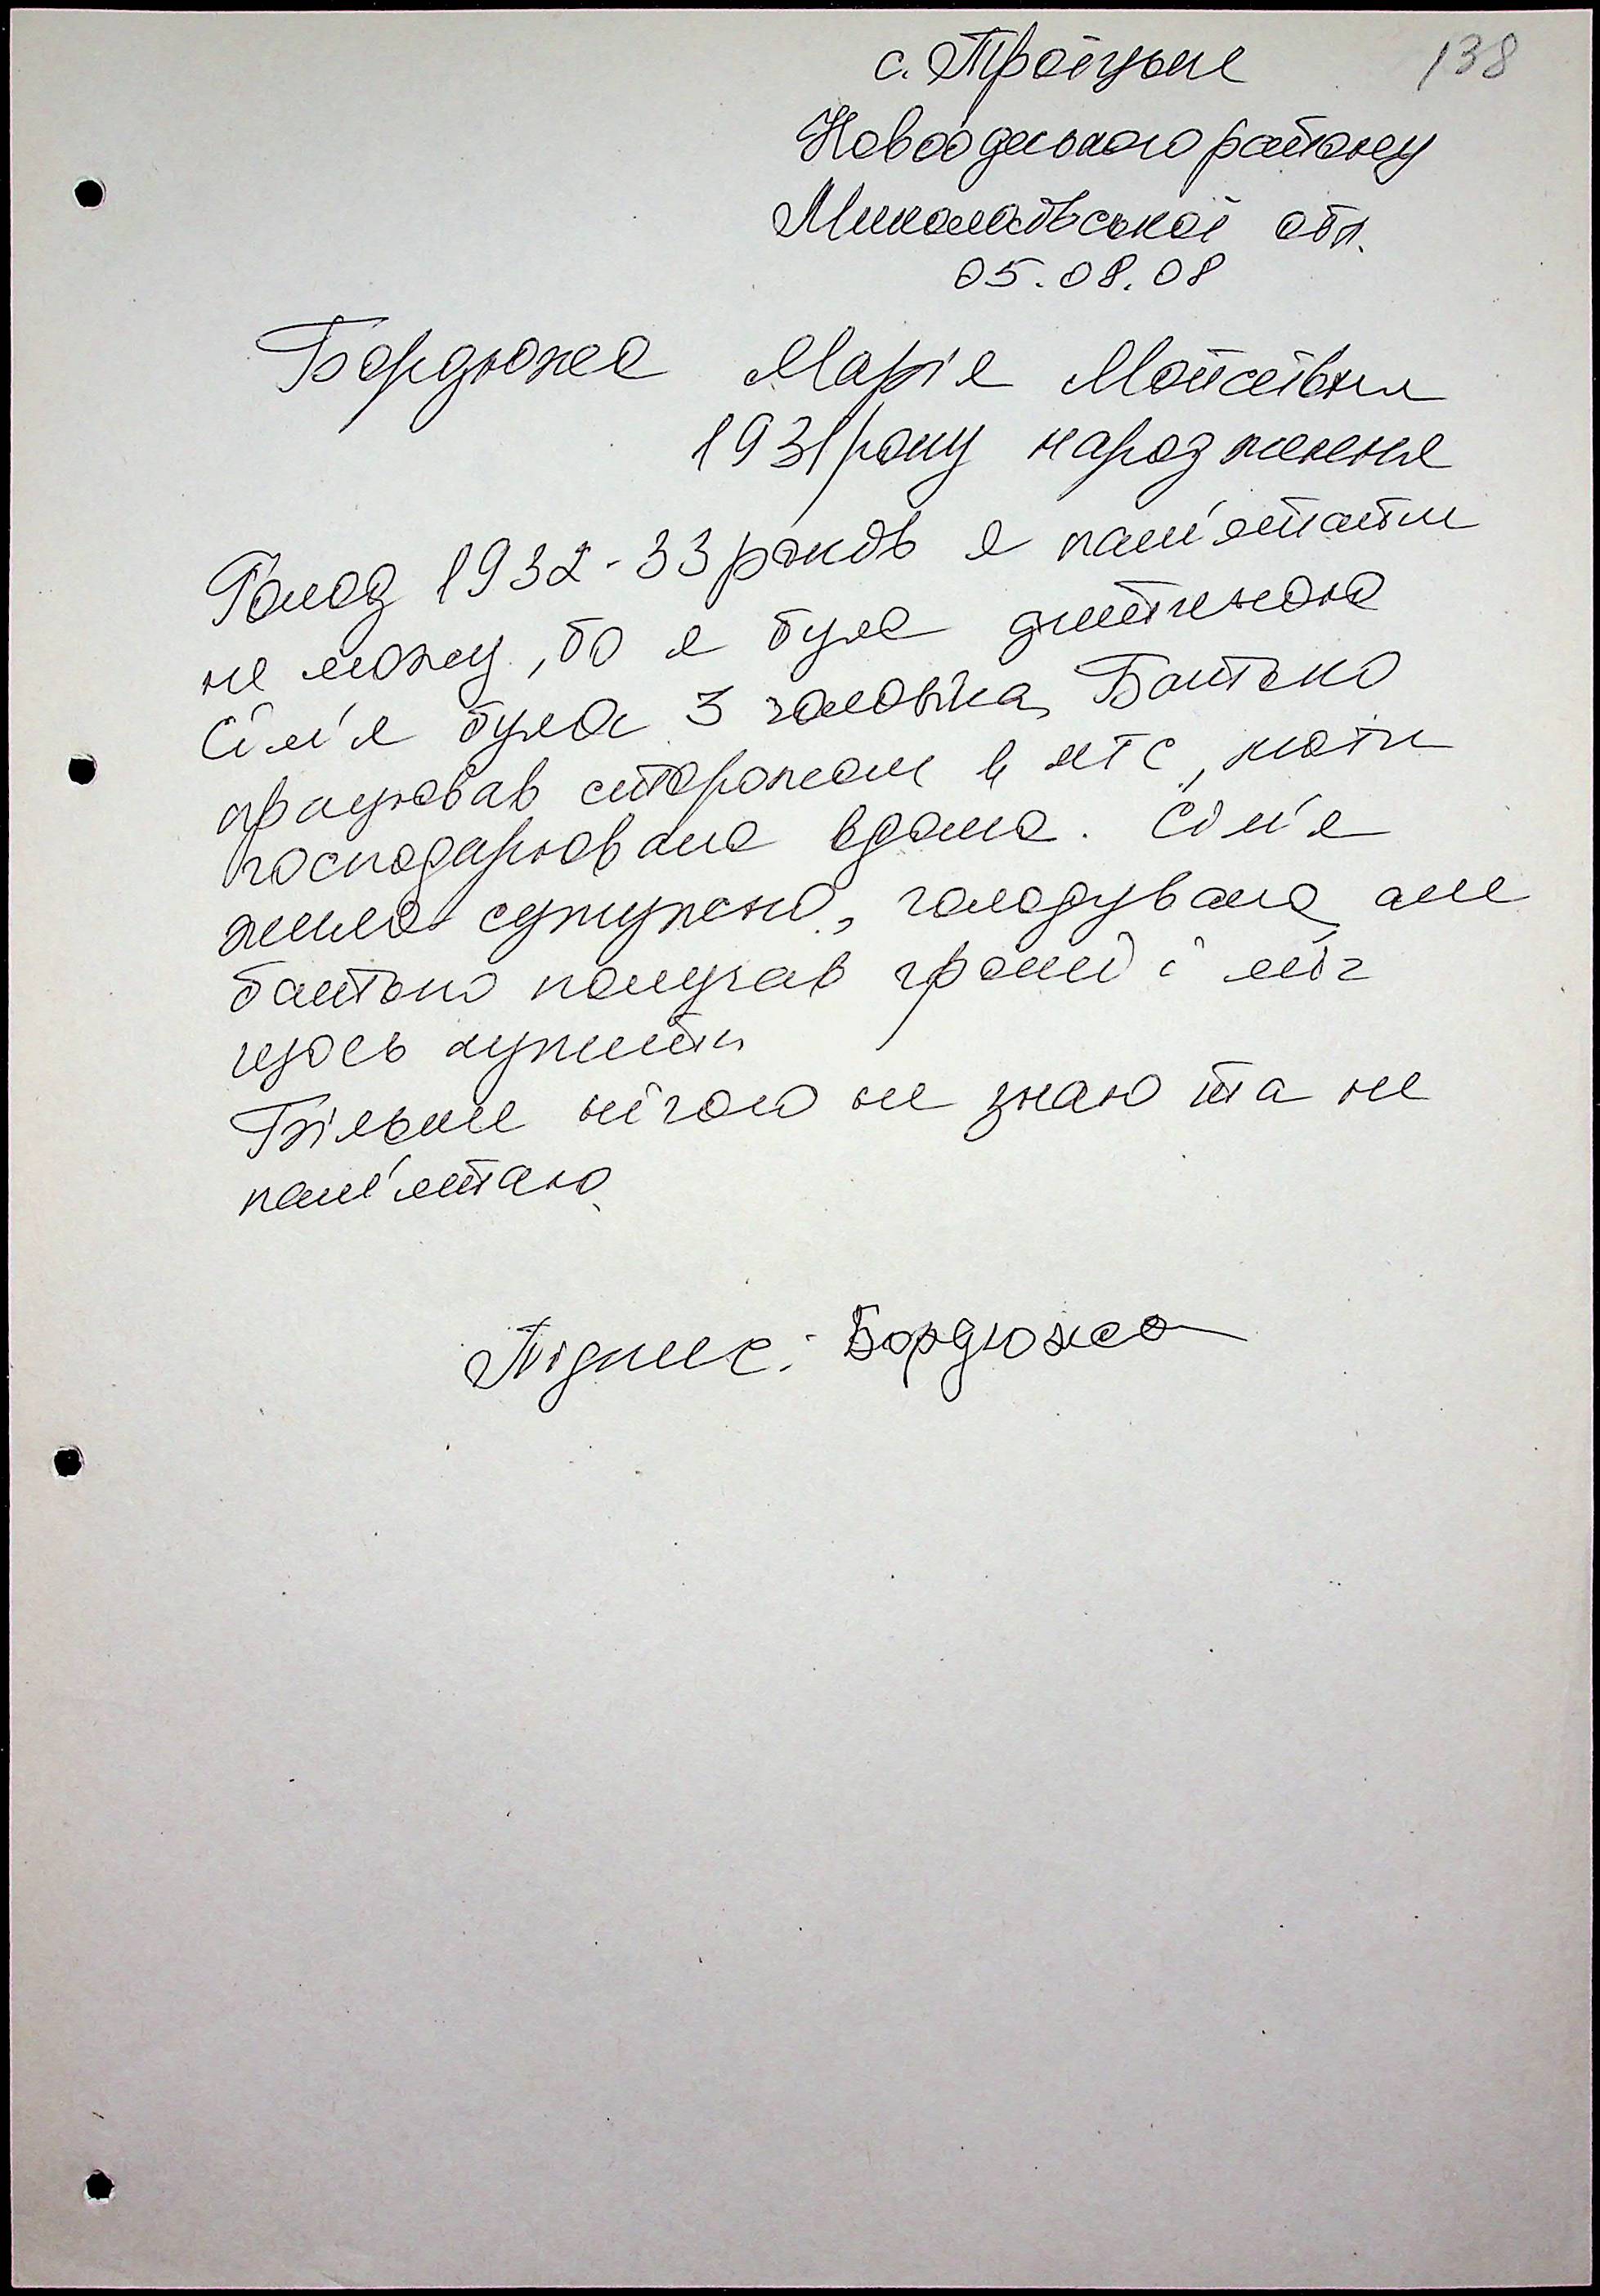 с. Троїцьке
138
Новоодеського району
Миколаївської обл.
05.08.08
Бордюжа Марія Мойсеївна
1931 року народження
Голод 1932-33 років я пам'ятати
не можу, бо я була дитиною
Сім'я була 3 чоловіка, Батько
працював сторожом в МТС, мати
господарювала вдома. Сім'я
жила сутужно, голодувала, але
батько получав гроші і міг
щось купити
Більше нічого не знаю та не
пам'ятаю.
Підпис: Бордюжа